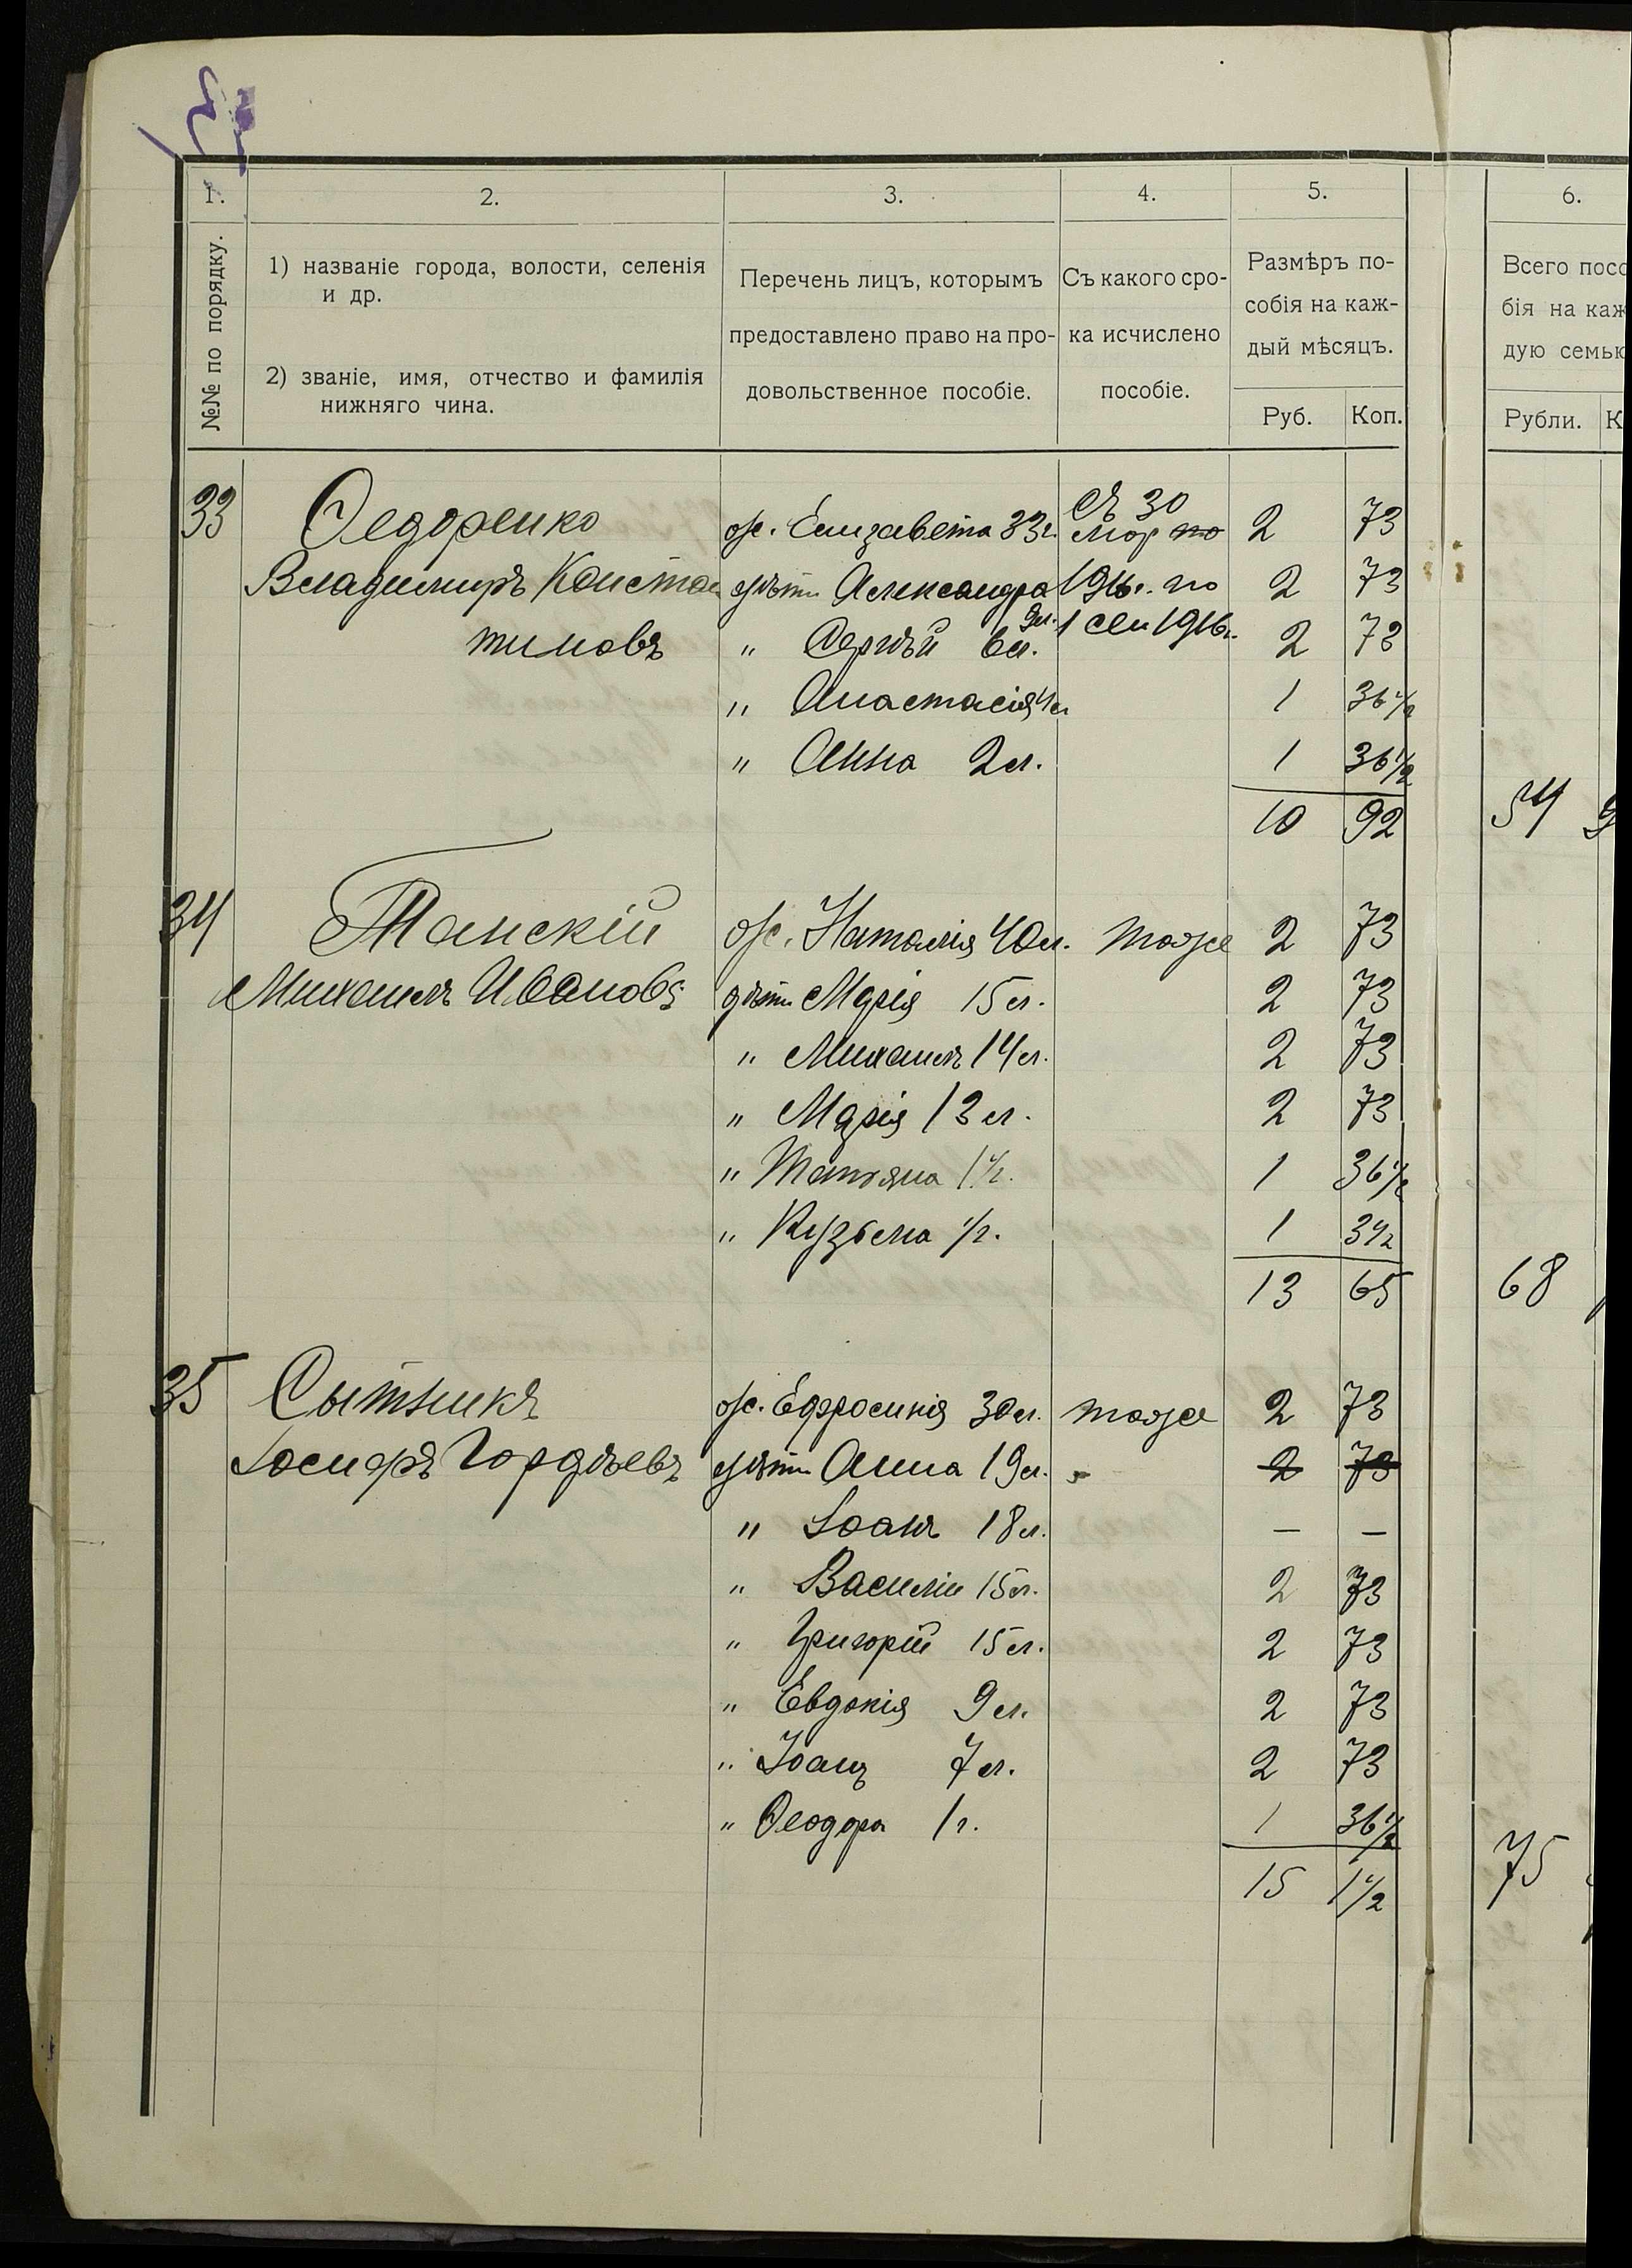 1. 2. 3. 4. 5. 6.
№№ по порядку.
1) названіе города, волости, селенія
и др.
2) званіе, имя, отчество и фамилія
нижняго чина.
Перечень лицъ, которымъ
предоставлено право на про-
довольственное пособіе.
Съ какого сро-
ка исчислено
пособіе.
Размѣръ по-
собія на каж-
дый мѣсяцъ.
Руб. Коп.
Всего посо
бія на каж
дую семью
Рубли. К
33 Федоренко ж. Елизавета 33 г. съ 30 мар по 2 73
Владимиръ Констан дѣти Александра 9 л. 1916 г. по 2 73
тиновъ " Сергѣй 6 л. 1 сен 1916 г. 2 73
" Анастасія 4 л 1 36 1/2
" Анна 2 л. 1 36 1/2
10 92 54 9
34 Танскій ж. Наталія 40 л. тоже 2 73
Михаилъ Ивановъ дѣти Марія 15 л. 2 73
" Михаилъ 14 л. 2 73
" Марія 13 л. 2 73
" Татьяна 1 1/2. 1 36 1/2
" Кузьма 1/2. 1 3 1/2
13 65 68
35 Сытникъ ж. Ефросинія 30 л. тоже 2 73
Іосифъ Гордѣевъ дѣти Анна 19 л. - 2 73
" Іоанъ 18 л. — —
" Василій 15 л. 2 73
" Григорій 15 л. 2 73
" Евдокія 9 л. 2 73
" Іоанъ 7 л. 2 73
" Феодора 1 г. 1 36 1/2
15 1 1/2 75